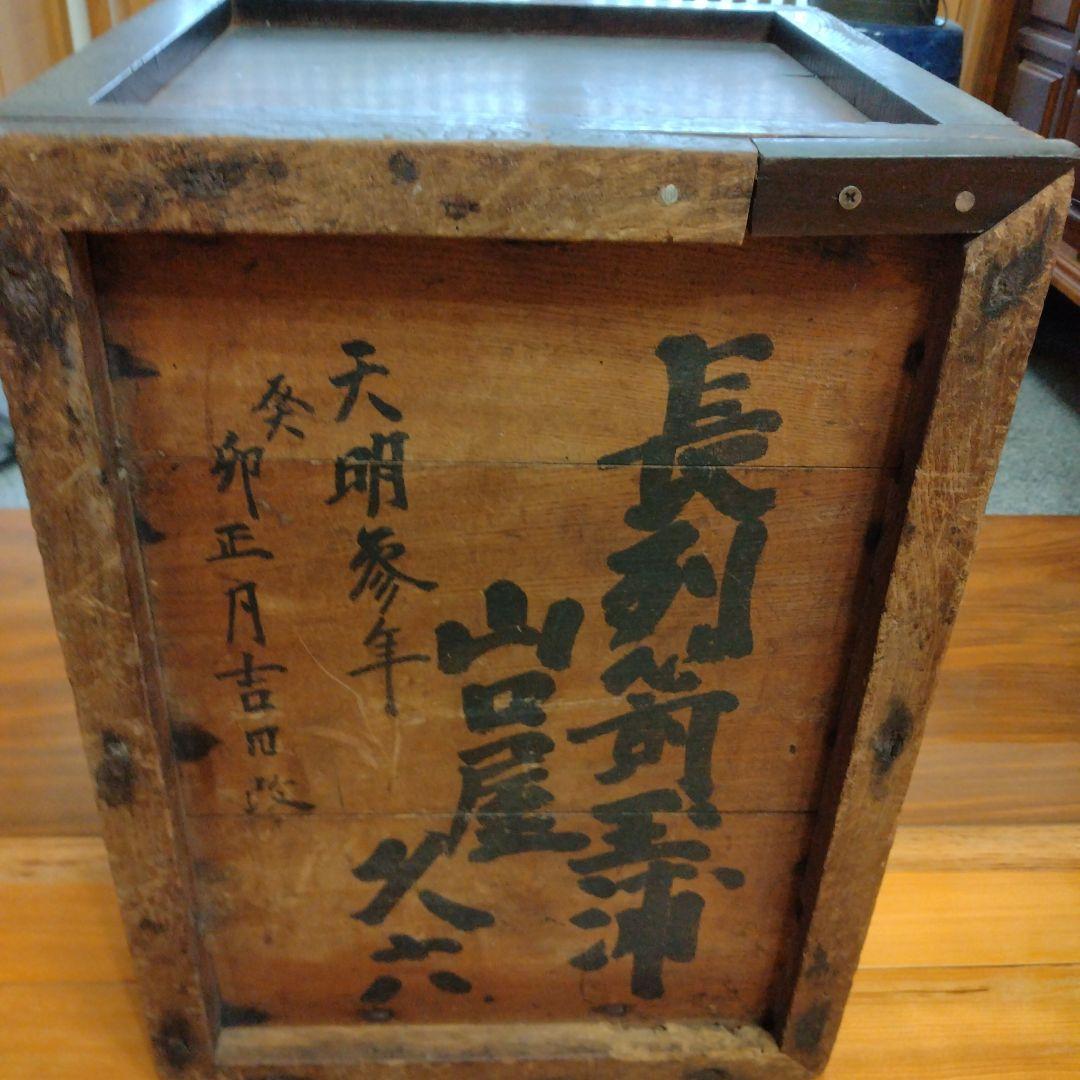 長
山口屋久六
天明参年
癸卯正月吉日改